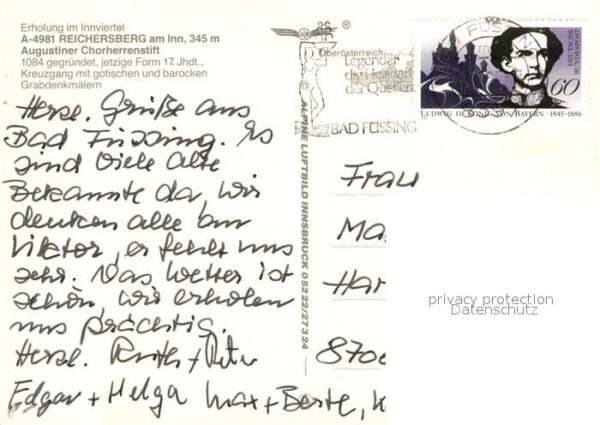 Erholung im Innviertel
A-4981 REICHERSBERG am Inn, 345 m
Augustiner Chorherrenstift
1084 gegründet, jetzige Form 17. Jhdt.,
Kreuzgang mit gotischen und barocken
Grabdenkmälern
Herzl. Grüße aus
Bad Füssing. Es
sind viele alte
Bekannte da, wir
denken alle an
Viktor, er fehlt uns
sehr. Das Wetter ist
schön, wir erholen
uns prächtig.
Herzl. Ruth + Peter
Edgar + Helga Max + Berte,
Oberösterreich
ALPINE LUFTBILD INNSBRUCK 05222/27324
Legendär
die Heilkraft
der Quellen
BAD FÜSSING
FÜSS
DEUTSCHE BUNDESPOST
60
LUDWIG II. KÖNIG VON BAYERN · 1845-1886
Frau
Ma
Har
870
privacy protection
Datenschutz